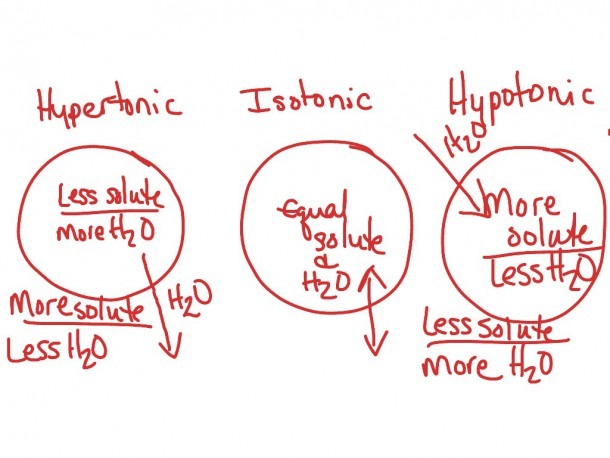 Hypertonic
Less solute
more H2O
H2O
More solute
Less H2O
Isotonic
equal
solute
&
H2O
Hypotonic
H2O
More
solute
Less H2O
Less solute
more H2O